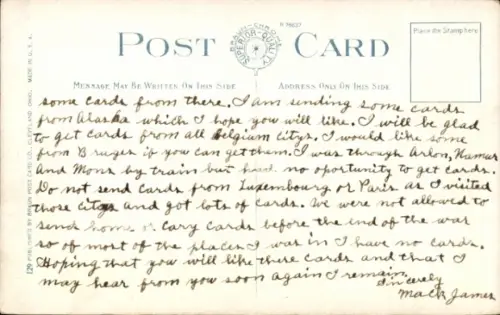 POST CARD
BRAUN-CHROME
SUPERIOR-QUALITY
Place the Stamp here
MESSAGE MAY BE WRITTEN ON THIS SIDE
ADDRESS ONLY ON THIS SIDE
some cards from there. I am sending some cards
from Alaska which I hope you will like. I will be glad
to get cards from all Belgiam citys. I would like some
from Bruges if you can get them. I was through Arlon, Namur
and Mons by train but had no oportunity to get cards.
Do not send cards from Luxembourg or Paris as I visited
those citys and got lots of cards. We were not allowed to
send home or cary cards before the end of the war
so of most of the places I was in I have no cards.
Hoping that you will like these cards and that I
may hear from you soon again I remain
Sincerely
Mack James
129 PUBLISHED BY BRAUN POST CARD CO., CLEVELAND, OHIO. MADE IN U. S. A.